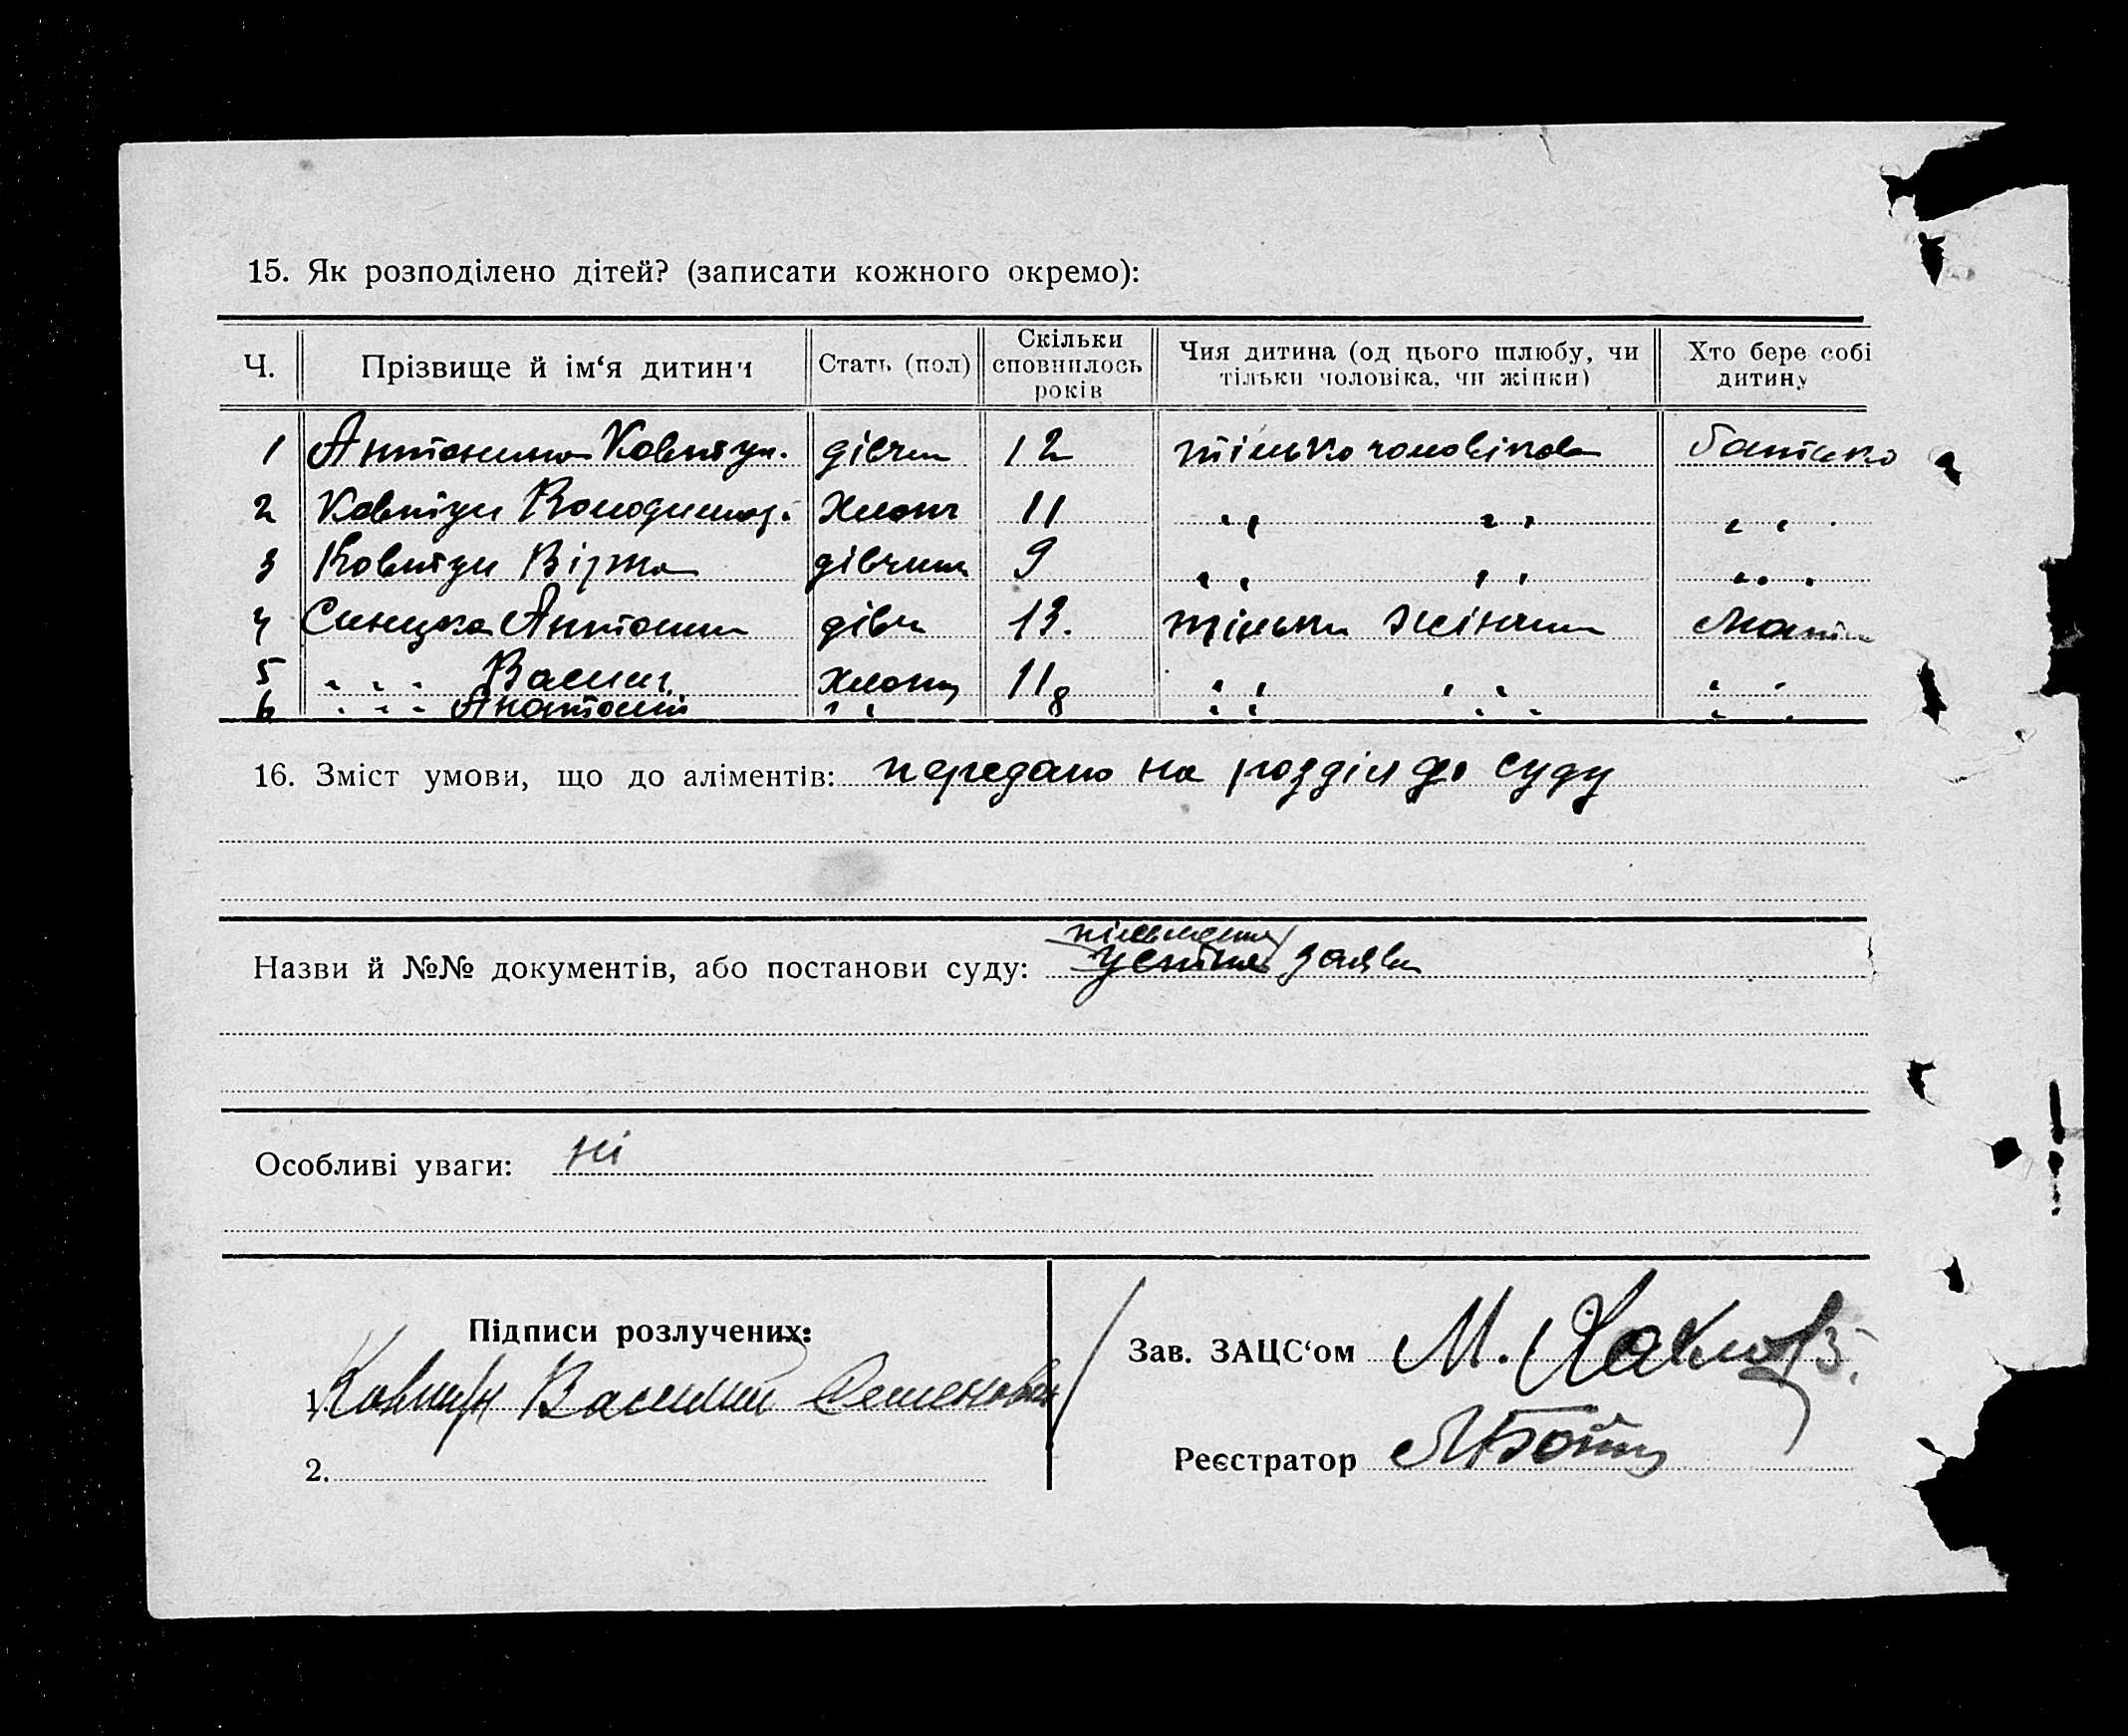 15. Як розподілено дітей? (записати кожного окремо):
Ч. Прізвище й ім‘я дитини Стать (пол) Скільки сповнилось років Чия дитина (од цього шлюбу, чи тільки чоловіка, чи жінки) Хто бере собі дитину
1 Антонина Ковтун. дівчи 12 тілько чоловікова батько
2 Ковтун Володимир. Хлопч 11 „ „ „
3 Ковтун Вірка дівчина 9 „ „ „
4 Антонин дівч 13. тільки жінчин мати
5 „ Васил. Хлопц 11 „ „ „
6 „ Анатолій „ 8 „ „ „
16. Зміст умови, що до аліментів: передано на розділ до суду
Назви й №№ документів, або постанови суду: усні заяви
Особливі уваги: ні
Підписи розлучених:
1. Ковтун Василий Семенович
2.
Зав. ЗАЦС‘ом М.
Реєстратор